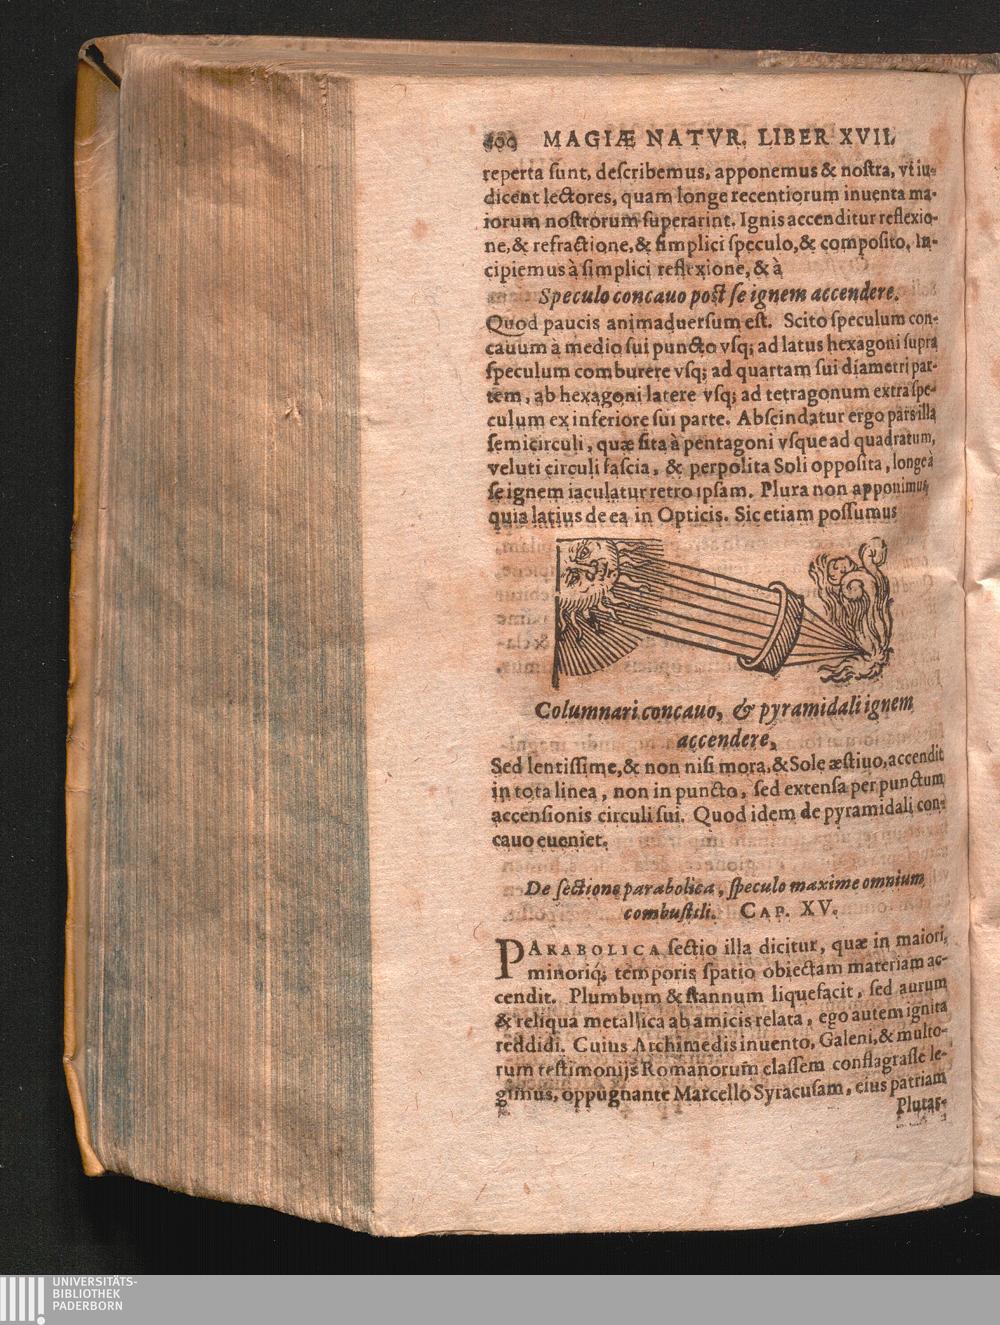 600 MAGIÆ NATVR. LIBER XVII.
reperta ſunt, deſcribemus, apponemus & noſtra, vt iu-
dicent lectores, quam longe recentiorum inuenta ma-
iorum noſtrorum ſuperarint. Ignis accenditur reflexio-
ne, & refractione, & ſimplici ſpeculo, & compoſito, In-
cipiemus à ſimplici reflexione, & à
Speculo concauo poſt ſe ignem accendere.
Quod paucis animaduerſum eſt. Scito ſpeculum con-
cauum à medio ſui puncto vſq; ad latus hexagoni ſupra
ſpeculum comburere vſq; ad quartam ſui diametri par-
tem, ab hexagoni latere vſq; ad tetragonum extra ſpe-
culum ex inferiore ſui parte. Abſcindatur ergo pars illa
ſemicirculi, quæ ſita à pentagoni vſque ad quadratum,
veluti circuli faſcia, & perpolita Soli oppoſita, longe à
ſe ignem iaculatur retro ipſam. Plura non apponimus,
quia latius de ea in Opticis. Sic etiam poſſumus
Columnari concauo, & pyramidali ignem
accendere,
Sed lentiſſime, & non niſi mora, & Sole æſtiuo, accendit
in tota linea, non in puncto, ſed extenſa per punctum
accenſionis circuli ſui. Quod idem de pyramidali con-
cauo eueniet.
De ſectione parabolica, ſpeculo maxime omnium
combuſtili. CAP. XV.
PARABOLICA ſectio illa dicitur, quæ in maiori,
minoriq́; temporis ſpatio obiectam materiam ac-
cendit. Plumbum & ſtannum liquefacit, ſed aurum
& reliqua metallica ab amicis relata, ego autem ignita
reddidi. Cuius Archimedis inuento, Galeni, & multo-
rum teſtimonijs Romanorum claſſem conflagraſſe le-
gimus, oppugnante Marcello Syracuſam, eius patriam
Plutar-
UNIVERSITÄTS-
BIBLIOTHEK
PADERBORN